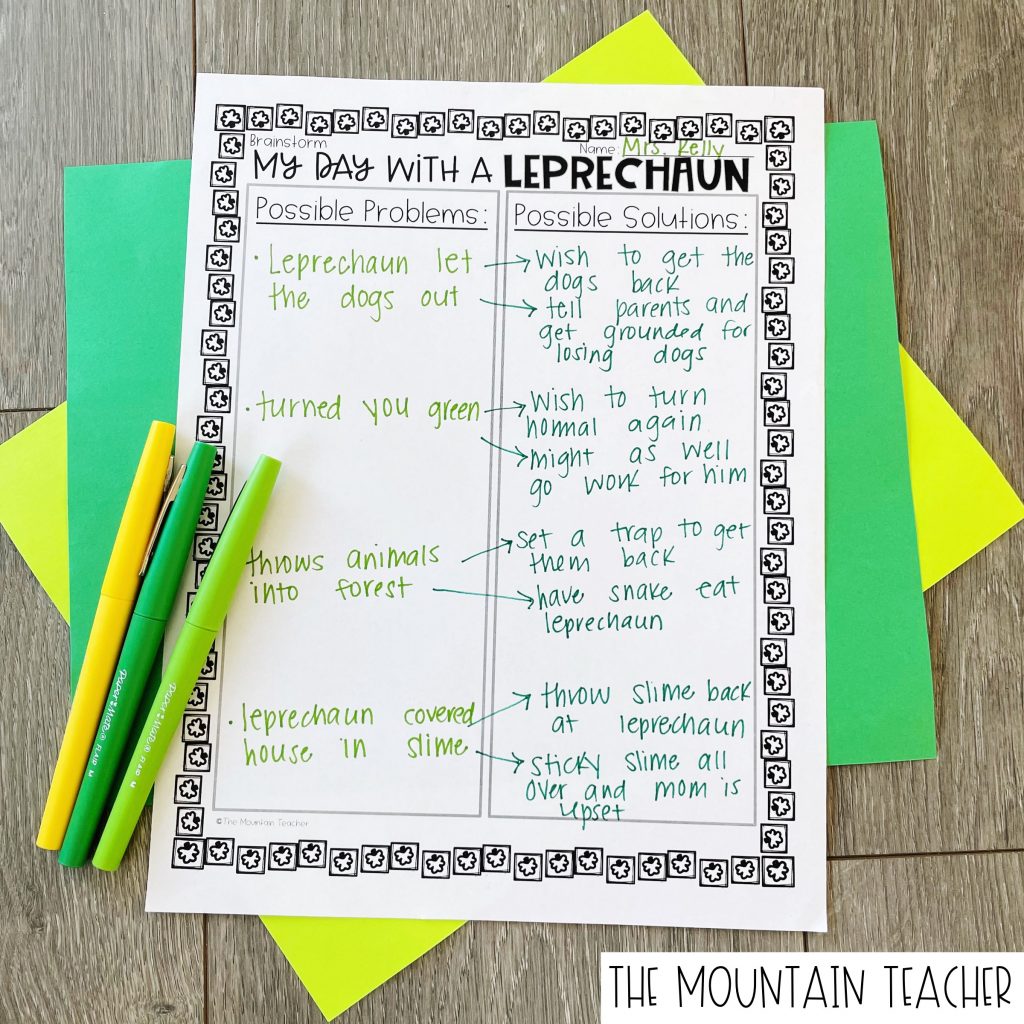 Brainstorm
Name: Mrs. Kelly
MY DAY WITH A LEPRECHAUN
Possible Problems:
• Leprechaun let
the dogs out
• turned you green
throws animals
into forest
• leprechaun covered
house in slime
Possible Solutions:
wish to get the
dogs back
tell parents and
get grounded for
losing dogs
Wish to turn
normal again
might as well
go work for him
set a trap to get
them back
have snake eat
leprechaun
throw slime back
at leprechaun
sticky slime all
over and mom is
upset
©The Mountain Teacher
paper mate® FLAIR M
paper mate® FLAIR M
THE MOUNTAIN TEACHER